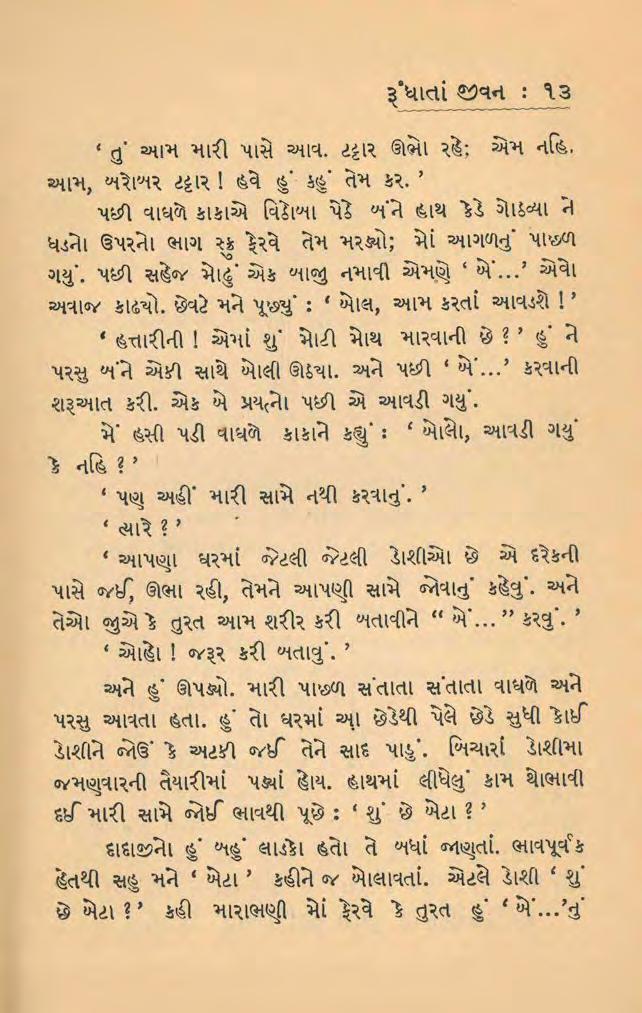 રૂંધાતાં જીવન : ૧૩
‘ તું આમ મારી પાસે આવ. ટટ્ટાર ઊભો રહે; એમ નહિ.
આમ, બરોબર ટટ્ટાર ! હવે હું કહું તેમ કર. ’
પછી વાઘળે કાકાએ વિઠોબા પેઠે બંને હાથ કેડે ગોઠવ્યા ને
ધડનો ઉપરનો ભાગ સ્ક્રુ ફેરવે તેમ મરડ્યો; મોં આગળનું પાછળ
ગયું. પછી સહેજ મોઢું એક બાજુ નમાવી એમણે ‘ બેં...’ એવો
અવાજ કાઢ્યો. છેવટે મને પૂછ્યું : ‘ બોલ, આમ કરતાં આવડશે ! ’
‘ હત્તારીની ! એમાં શું મોટી મોથ મારવાની છે ? ’ હું ને
પરસુ બંને એકી સાથે બોલી ઊઠ્યા. અને પછી ‘ બેં...’ કરવાની
શરૂઆત કરી. એક બે પ્રયત્નો પછી એ આવડી ગયું.
મેં હસી પડી વાઘળે કાકાને કહ્યું : ‘ બોલો, આવડી ગયું
કે નહિ ? ’
‘ પણ અહીં મારી સામે નથી કરવાનું. ’
‘ ત્યારે ? ’
‘ આપણા ઘરમાં જેટલી જેટલી ડોશીઓ છે એ દરેકની
પાસે જઈ, ઊભા રહી, તેમને આપણી સામે જોવાનું કહેવું. અને
તેઓ જુએ કે તુરત આમ શરીર કરી બતાવીને “ બેં... ” કરવું. ’
‘ ઓહો ! જરૂર કરી બતાવું. ’
અને હું ઊપડ્યો. મારી પાછળ સંતાતા સંતાતા વાઘળે અને
પરસુ આવતા હતા. હું તો ઘરમાં આ છેડેથી પેલે છેડે સુધી કોઈ
ડોશીને જોઉં કે અટકી જઈ તેને સાદ પાડું. બિચારાં ડોશીમા
જમણવારની તૈયારીમાં પડ્યાં હોય. હાથમાં લીધેલું કામ થોભાવી
દઈ મારી સામે જોઈ ભાવથી પૂછે : ‘ શું છે બેટા ? ’
દાદાજીનો હું બહું લાડકો હતો તે બધાં જાણતાં. ભાવપૂર્વક
હેતથી સહુ મને ‘ બેટા ’ કહીને જ બોલાવતાં. એટલે ડોશી ‘ શું
છે બેટા ? ’ કહી મારાભણી મોં ફેરવે કે તુરત હું ‘ બેં...’નું